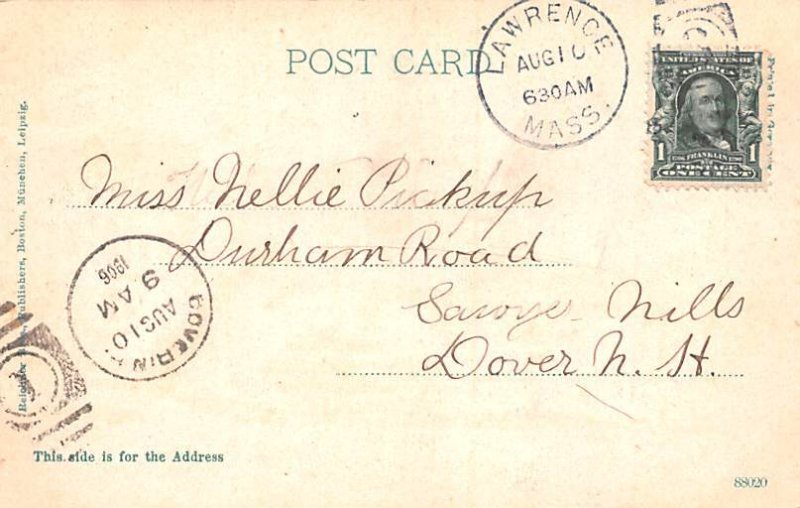 POST CARD
LAWRENCE
AUG 10
630 AM
MASS.
UNITED STATES OF
AMERICA
1 1
FRANKLIN
POSTAGE
ONE CENT
Miss Nellie Pickup
Durham Road
Sawyer Mills
Dover N. H.
DOVER N.H.
AUG 10
9 AM
1906
Publishers, Boston, München, Leipzig.
This side is for the Address
88020